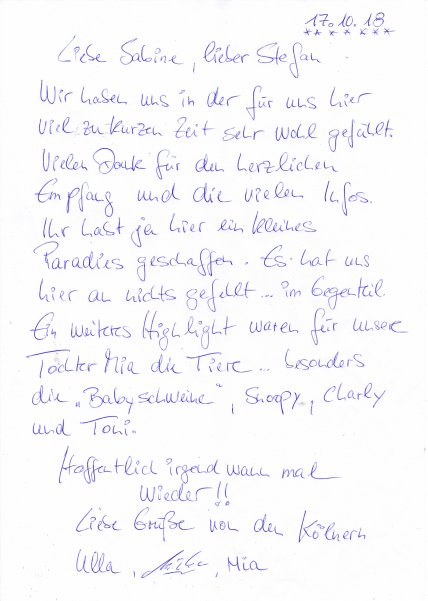 17.10.18
Liebe Sabine, lieber Stefan
Wir haben uns in der für uns hier
viel zu kurzen Zeit sehr wohl gefühlt.
Vielen Dank für den herzlichen
Empfang und die vielen Infos.
Ihr hast ja hier ein kleines
Paradies geschaffen. Es hat uns
hier an nichts gefehlt ... im Gegenteil.
Ein weiteres Highlight waren für unsere
Tochter Mia die Tiere ... besonders
die „Babyschweine“, Snoopy, Charly
und Toni.
Hoffentlich irgendwann mal
Wieder!!
Liebe Grüße von den Kölnern
Ulla, Mia